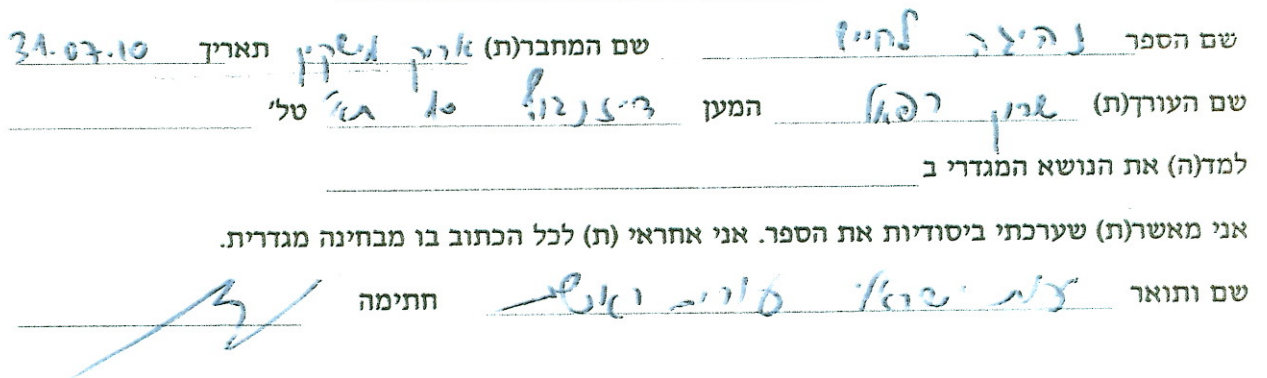 שם הספר נהיגה לחיים שם המחבר(ת) אריק מישקין תאריך 31.07.10
שם העורך(ת) שרון רפאל המען דיזנגוף ת"א טל׳
למד(ה) את הנושא המגדרי ב
אני מאשר(ת) שערכתי ביסודיות את הספר. אני אחראי (ת) לכל הכתוב בו מבחינה מגדרית.
שם ותואר ישראלי חתימה